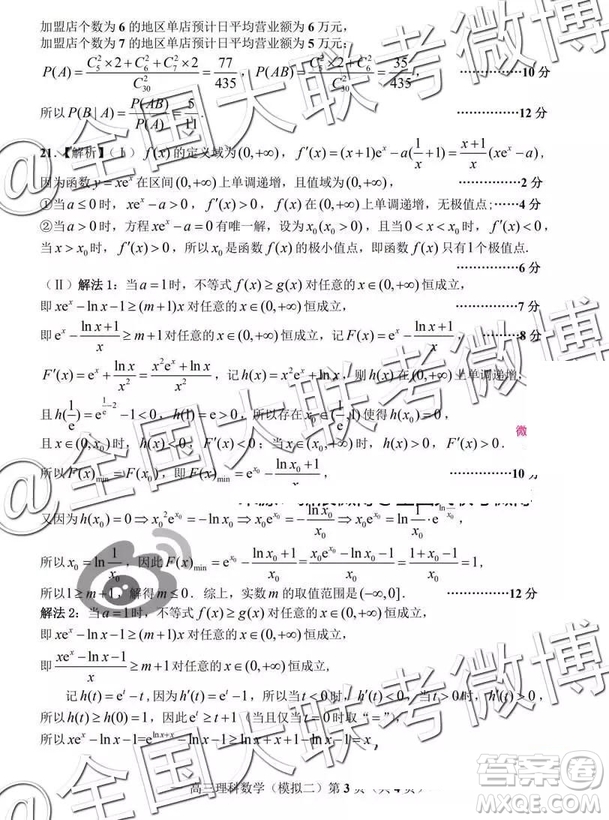 加盟店个数为 6 的地区单店预计日平均营业额为 6 万元,
加盟店个数为 7 的地区单店预计日平均营业额为 5 万元;
P(A) = (C₅²×2+C₆²+C₇²×2)/C₃₀² = 77/435, P(AB) = /C₃₀² = 35/435, ……………10 分
所以 P(B|A) = P(AB)/P(A) = 5/11. ……………12 分
21.【解析】(Ⅰ) f(x) 的定义域为 (0,+∞), f′(x) = (x+1)eˣ − a(1/x+1) = (x+1)/x (xeˣ − a),
因为函数 y = xeˣ 在区间 (0,+∞) 上单调递增,且值域为 (0,+∞), ……………2 分
①当 a ≤ 0 时, xeˣ − a > 0, f′(x) > 0, f(x) 在 (0,+∞) 上单调递增,无极值点;……………4 分
②当 a > 0 时,方程 xeˣ − a = 0 有唯一解,设为 x₀(x₀ > 0),且当 0 < x < x₀ 时, f′(x) < 0,
当 x > x₀ 时, f′(x) > 0,所以 x₀ 是函数 f(x) 的极小值点,即函数 f(x) 只有 1 个极值点.
……………6 分
(Ⅱ) 解法 1:当 a = 1 时,不等式 f(x) ≥ g(x) 对任意的 x∈(0,+∞) 恒成立,
即 xeˣ − ln x − 1 ≥ (m+1)x 对任意的 x∈(0,+∞) 恒成立, ……………7 分
即 eˣ − (ln x+1)/x ≥ m+1 对任意的 x∈(0,+∞) 恒成立,记 F(x) = eˣ − (ln x+1)/x, ……8 分
F′(x) = eˣ + ln x/x² = (x²eˣ + ln x)/x²,记 h(x) = x²eˣ + ln x,则 h(x) 在 (0,+∞) 上单调递增
且 h(1/e) = e^(1/e−2) − 1 < 0, h(1) = e > 0,所以存在 x₀∈(1/e,1) 使得 h(x₀) = 0,
且当 x∈(0,x₀) 时, h(x) < 0, F′(x) < 0;当 时, h(x) > 0, F′(x) > 0. 微
所以 F(x)min = F(x₀),即 F(x)min = e^x₀ − (ln x₀+1)/x₀, ……………10 分
又因为 h(x₀) = 0 ⇒ x₀²e^x₀ = −ln x₀ ⇒ x₀e^x₀ = −ln x₀/x₀ ⇒ x₀e^x₀ = ln(1/x₀)·e^(ln(1/x₀)),
所以 x₀ = ln(1/x₀),因此 F(x)min = e^x₀ − (ln x₀+1)/x₀ = (x₀e^x₀ − ln x₀ − 1)/x₀ = (1+x₀−1)/x₀ = 1,
所以 1 ≥ m+1,解得 m ≤ 0. 综上,实数 m 的取值范围是 (−∞,0]. ……………12 分
解法 2:当 a = 1 时,不等式 f(x) ≥ g(x) 对任意的 x∈(0,+∞) 恒成立,
即 xeˣ − ln x − 1 ≥ (m+1)x 对任意的 x∈(0,+∞) 恒成立,
即 (xeˣ − ln x − 1)/x ≥ m+1 对任意的 x∈(0,+∞) 恒成立,
记 h(t) = eᵗ − t,因为 h′(t) = eᵗ − 1,所以当 t < 0 时, h′(t) < 0,当 t > 0 时, h′(t) > 0,
所以 h(t) ≥ h(0) = 1,因此 eᵗ ≥ t+1(当且仅当 t = 0 时取“=”),
所以 xeˣ − ln x − 1 = e^(ln x+x) − ,
高三理科数学(模拟二)第 3 页(共 4 页)
@全国大联考微博
@全国大联考微博
答案圈